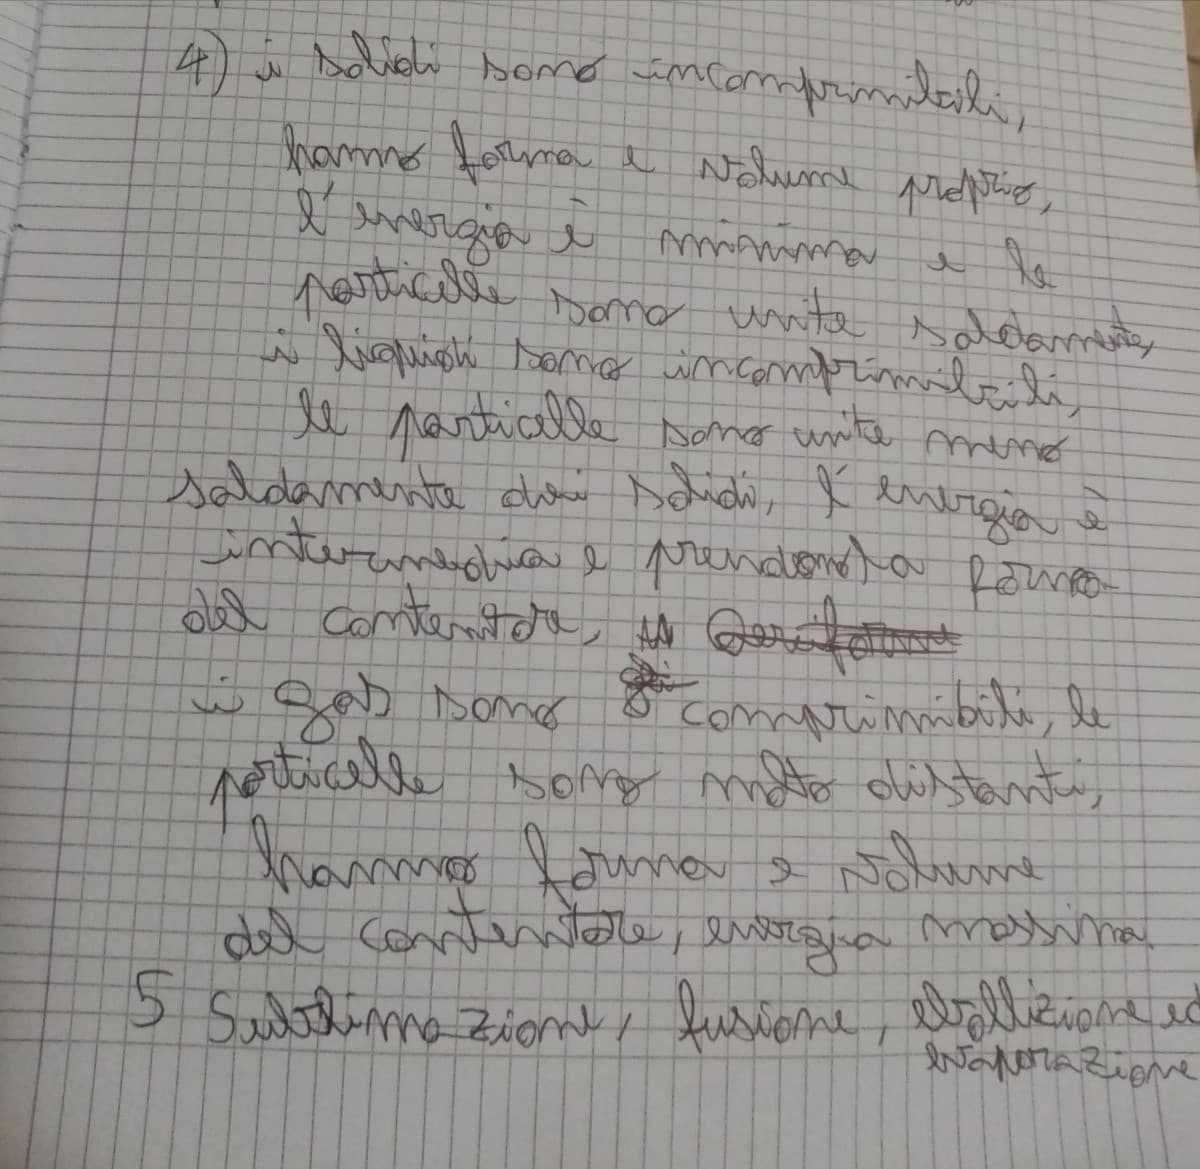 4) i solidi sono incomprimibili,
hanno forma e volume proprio,
l'energia è minima e le
particelle sono unite saldamente,
i liquidi sono incomprimibili,
le particelle sono unite meno
saldamente dei solidi, l'energia è
intermedia e prendono la forma
del contenitore,
i gas sono comprimibili, le
particelle sono molto distanti,
hanno forma e volume
del contenitore, energia massima.
5 Sublimazione, fusione, ebollizione ed
evaporazione